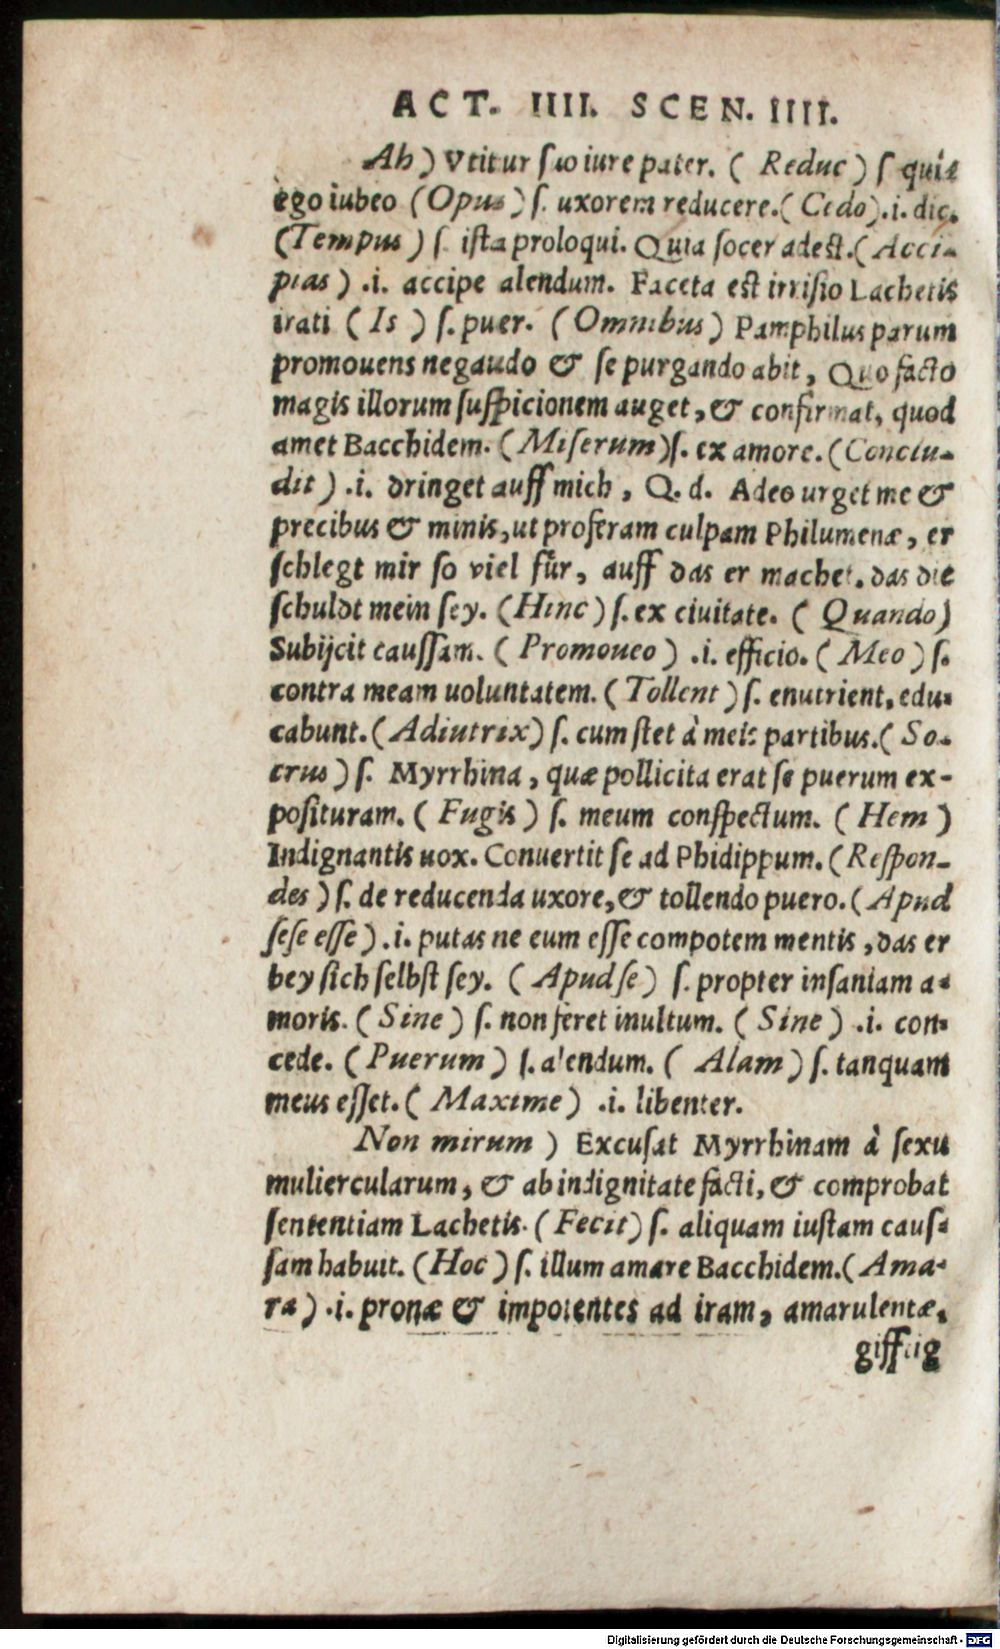 ACT. IIII. SCEN. IIII.
Ah ) Vtitur suo iure pater. ( Reduc ) s quia
ego iubeo (Opus ) s. uxorem reducere.( Cedo).i. dic.
(Tempus ) s. ista proloqui. Quia socer adest.( Acci-
pias ) .i. accipe alendum. Faceta est irrisio Lachetis
irati ( Is ) s. puer. ( Omnibus ) Pamphilus parum
promouens negando & se purgando abit, Quo facto
magis illorum suspicionem auget, & confirmat, quod
amet Bacchidem. ( Miserum)s. ex amore. (Conclu-
dit ) .i. dringet auff mich, Q. d. Adeo urget me &
precibus & minis, ut proferam culpam Philumenæ, er
schlegt mir so viel für, auff das er machet. das die
schuldt mein sey. (Hinc ) s. ex ciuitate. ( Quando)
Subijcit caussam. ( Promoueo ) .i. efficio. ( Meo ) s.
contra meam uoluntatem. ( Tollent ) s. enutrient, edu-
cabunt. ( Adiutrix) s. cum stet à meis partibus.( So-
crus ) s. Myrrhina, quæ pollicita erat se puerum ex-
posituram. ( Fugis ) s. meum conspectum. ( Hem )
Indignantis uox. Conuertit se ad Phidippum. ( Respon-
des ) s. de reducenda uxore, & tollendo puero. ( Apud
sese esse ) .i. putas ne eum esse compotem mentis, das er
bey sich selbst sey. ( Apud se ) s. propter insaniam a-
moris. ( Sine ) s. non feret inultum. ( Sine ) .i. con-
cede. ( Puerum ) s. alendum. ( Alam ) s. tanquam
meus esset. ( Maxime ) .i. libenter.
Non mirum ) Excusat Myrrhinam à sexu
muliercularum, & ab indignitate facti, & comprobat
sententiam Lachetis. ( Fecit) s. aliquam iustam caus-
sam habuit. (Hoc ) s. illum amare Bacchidem.( Ama-
ra ) .i. pronæ & impotentes ad iram, amarulentæ,
gifftig
Digitalisierung gefördert durch die Deutsche Forschungsgemeinschaft - DFG